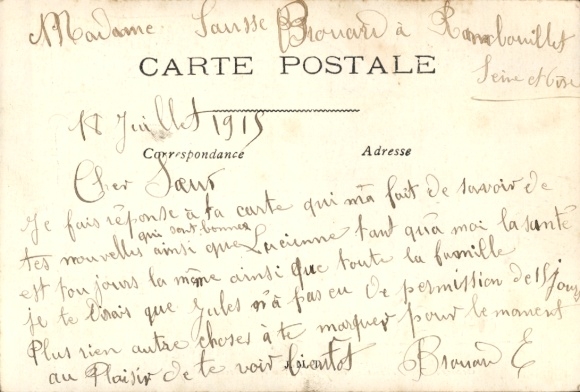 Madame Sausse Brouard à Rambouillet
Seine et Oise
CARTE POSTALE
18 Juillet 1915
Correspondance Adresse
Cher Sœur
Je fais réponse à ta carte qui m'a fait de savoir de
tes nouvelles qui sont bonnes ainsi que Lucienne tant qu'à moi la santé
est toujours la même ainsi que toute la famille
je te dirais que Jules n'a pas eu de permission de 15 jours
Plus rien autre choses à te marquer pour le moment
au Plaisir de te voir bientôt Brouard E